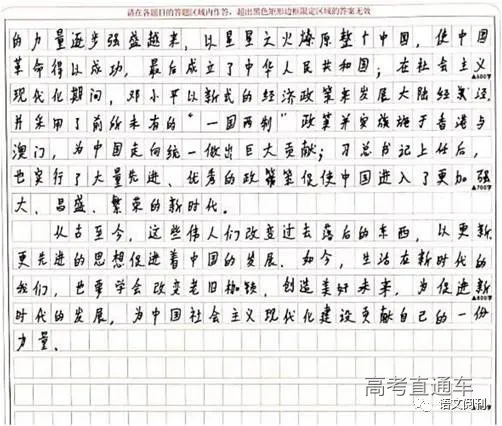 请在各题目的答题区域内作答，超出黑色矩形边框限定区域的答案无效
的力量逐步强盛起来，以星星之火燎原整个中国，使中国
革命得以成功，最后成立了中华人民共和国；在社会主义
▲600字
现代化期间，邓小平以新式的经济政策来发展大陆经济，
并采用了前所未有的“一国两制”政策并实施于香港与
澳门，为中国走向统一做出巨大贡献；习总书记上任后，
也实行了大量先进、优秀的政策促使中国进入了更加强
▲700字
大、昌盛、繁荣的新时代。
从古至今，这些伟人们改变过去落后的东西，以更新
更先进的思想促进着中国的发展．如今，生活在新时代的
我们，也要学会改变老旧枷锁，创造美好未来，为促进新
▲800字
时代的发展，为中国社会主义现代化建设贡献自己的一份
力量．
高考直通车
语文阅刊